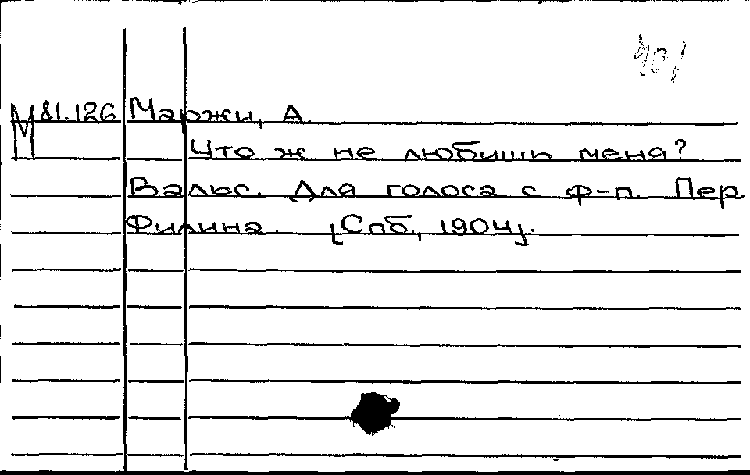 М81.126 Маржи, А.
Что ж не любишь меня?
Вальс. Для голоса с ф-п. Пер
Филина. [Спб., 1904].